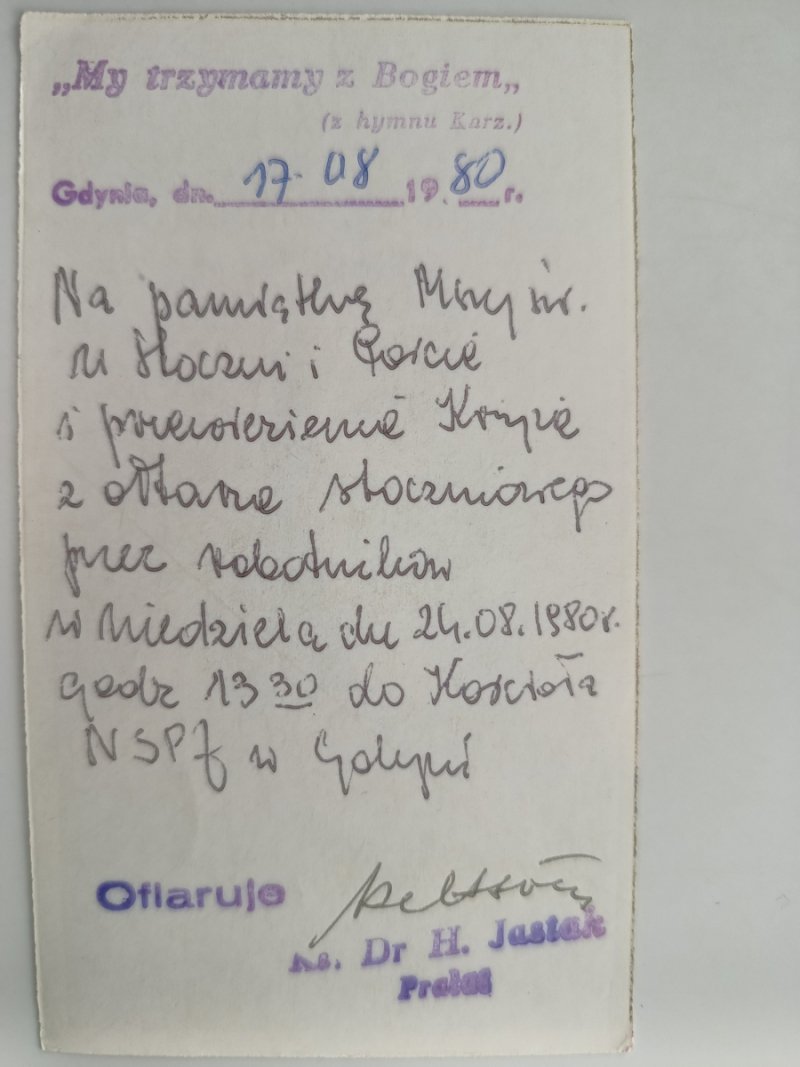 „My trzymamy z Bogiem„
(z hymnu Karz.)
Gdynia, dn. 17.08 19.80 r.
Na pamiątkę Mszy św.
w Stoczni i Porcie
i przewiezienie Krzyża
z ołtarza stoczniowego
przez robotników
w Niedzielę dn 24.08.1980r.
godz 13 30 do Kościoła
NSPJ w Gdyni
Ofiaruje
Ks. Dr H. Jastak
Prałat